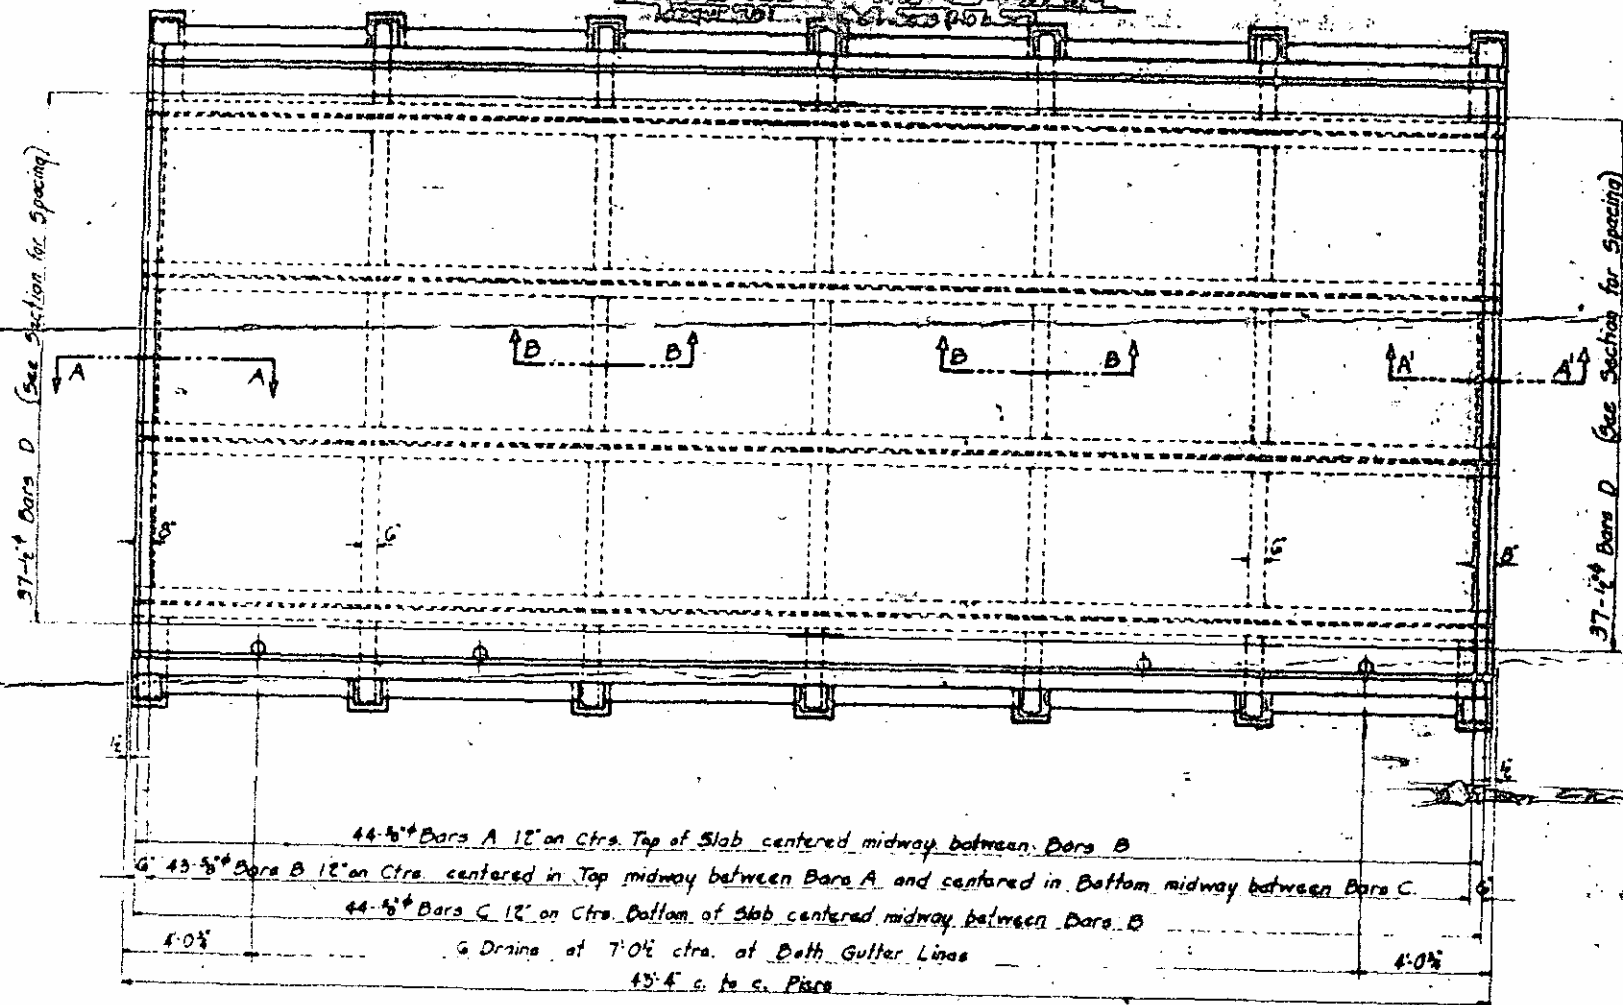 37-½"ϕ Bars D (See Section for Spacing)
37-½"ϕ Bars D (See Section for Spacing)
A
A
B
B
B
B
A'
A'
8"
6"
6"
8"
½"
½"
44-⅝"ϕ Bars A 12" on Ctrs. Top of Slab centered midway between Bars B
6" 43-⅝"ϕ Bars B 12" on Ctrs. centered in Top midway between Bars A and centered in Bottom midway between Bars C. 6"
44-⅝"ϕ Bars C 12" on Ctrs. Bottom of Slab centered midway between Bars B
4'-0¾" 6 Drains at 7'-0½ ctrs. at Both Gutter Lines 4'-0¾"
43'-4" c. to c. Piers